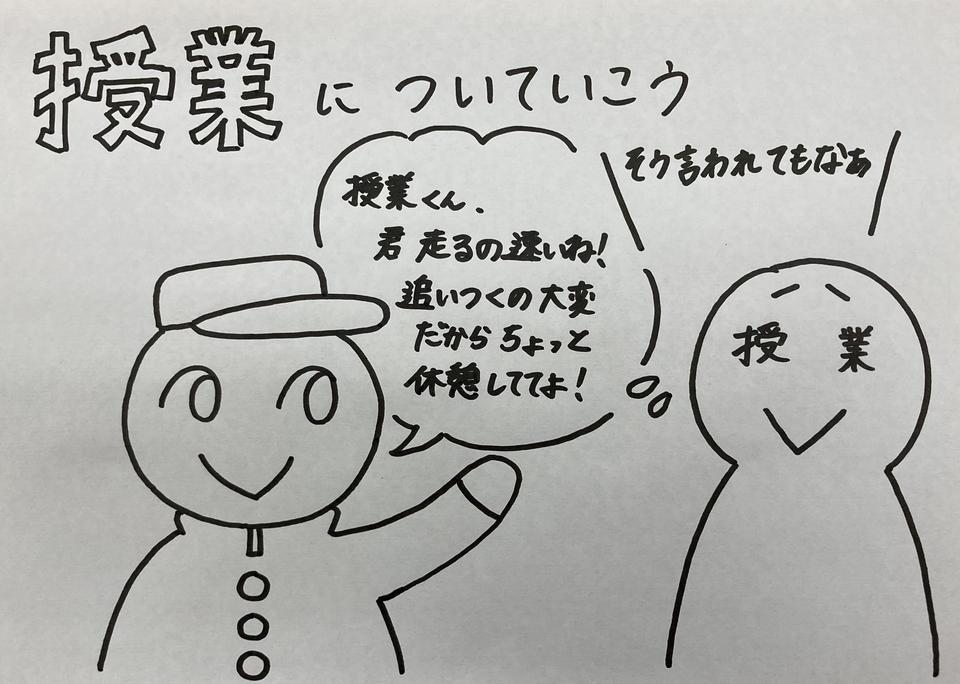 授業についていこう
授業くん、
君走るの速いね!
追いつくの大変
だからちょっと
休憩しててよ!
そう言われてもなあ
授 業